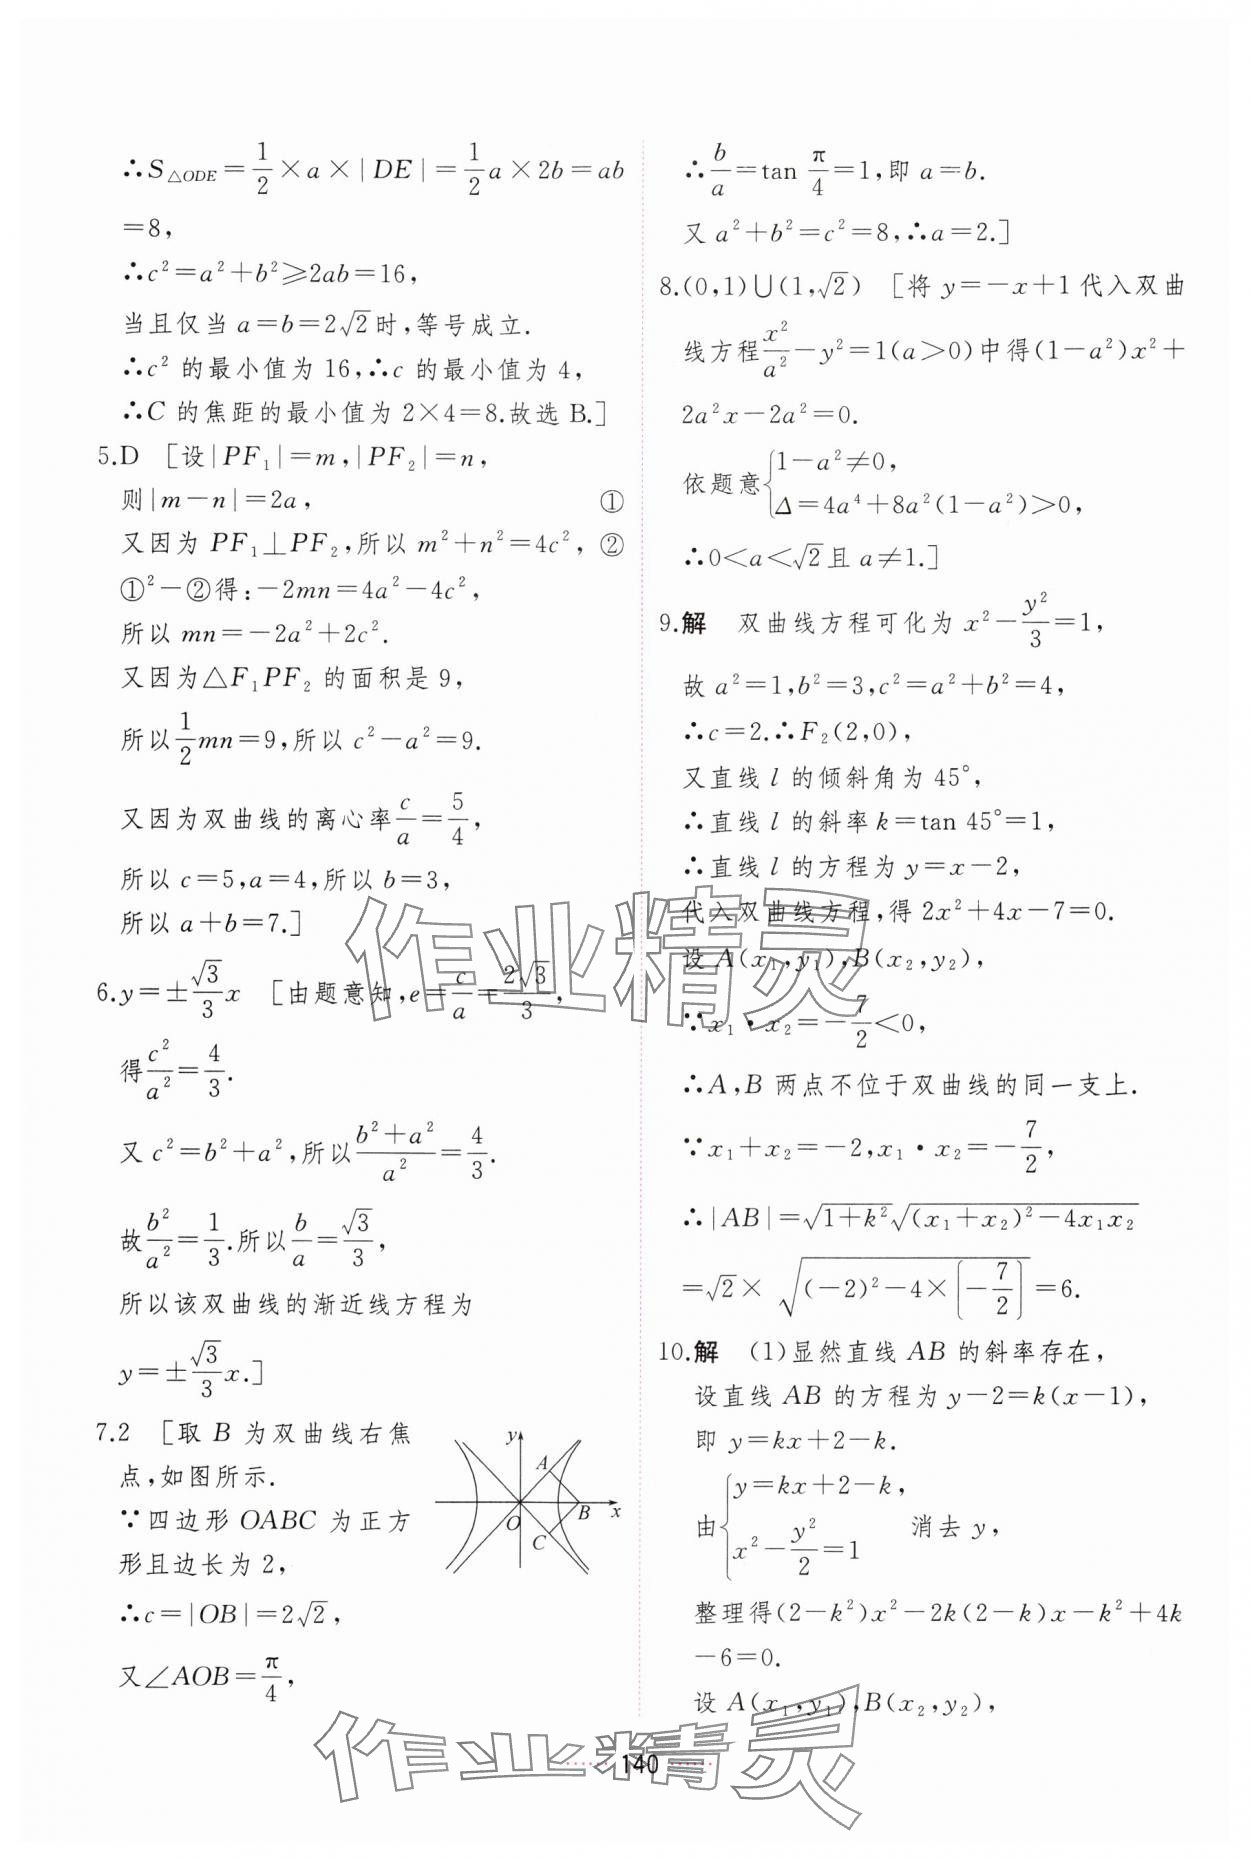 ∴S△ODE=1/2×a×|DE|=1/2a×2b=ab
=8,
∴c²=a²+b²≥2ab=16,
当且仅当 a=b=2√2时,等号成立.
∴c² 的最小值为 16,∴c 的最小值为 4,
∴C 的焦距的最小值为 2×4=8.故选 B.]
5.D [设|PF₁|=m,|PF₂|=n,
则|m-n|=2a, ①
又因为 PF₁⊥PF₂,所以 m²+n²=4c², ②
①²-②得:-2mn=4a²-4c²,
所以 mn=-2a²+2c².
又因为△F₁PF₂ 的面积是 9,
所以1/2mn=9,所以 c²-a²=9.
又因为双曲线的离心率c/a=5/4,
所以 c=5,a=4,所以 b=3,
所以 a+b=7.]
6.y=±√3/3x [由题意知,e=c/a=2√3/3,
得c²/a²=4/3.
又 c²=b²+a²,所以(b²+a²)/a²=4/3.
故b²/a²=1/3.所以b/a=√3/3,
所以该双曲线的渐近线方程为
y=±√3/3x.]
7.2 [取 B 为双曲线右焦
点,如图所示.
∵四边形 OABC 为正方
形且边长为 2,
∴c=|OB|=2√2,
又∠AOB=π/4,
y
A
O
B
x
C
∴b/a=tan π/4=1,即 a=b.
又 a²+b²=c²=8,∴a=2.]
8.(0,1)∪(1,√2) [将 y=-x+1 代入双曲
线方程x²/a²-y²=1(a>0)中得(1-a²)x²+
2a²x-2a²=0.
依题意{1-a²≠0,
Δ=4a⁴+8a²(1-a²)>0,
∴0<a<√2且 a≠1.]
9.解 双曲线方程可化为 x²-y²/3=1,
故 a²=1,b²=3,c²=a²+b²=4,
∴c=2.∴F₂(2,0),
又直线 l 的倾斜角为 45°,
∴直线 l 的斜率 k=tan 45°=1,
∴直线 l 的方程为 y=x-2,
代入双曲线方程,得 2x²+4x-7=0.
设 A(x₁,y₁),B(x₂,y₂),
∵x₁·x₂=-7/2<0,
∴A,B 两点不位于双曲线的同一支上.
∵x₁+x₂=-2,x₁·x₂=-7/2,
∴|AB|=√(1+k²)√((x₁+x₂)²-4x₁x₂)
=√2×√((-2)²-4×(-7/2))=6.
10.解 (1)显然直线 AB 的斜率存在,
设直线 AB 的方程为 y-2=k(x-1),
即 y=kx+2-k.
由{y=kx+2-k,
x²-y²/2=1 消去 y,
整理得(2-k²)x²-2k(2-k)x-k²+4k
-6=0.
设 A(x₁,y₁),B(x₂,y₂),
140
作业精灵
作业精灵